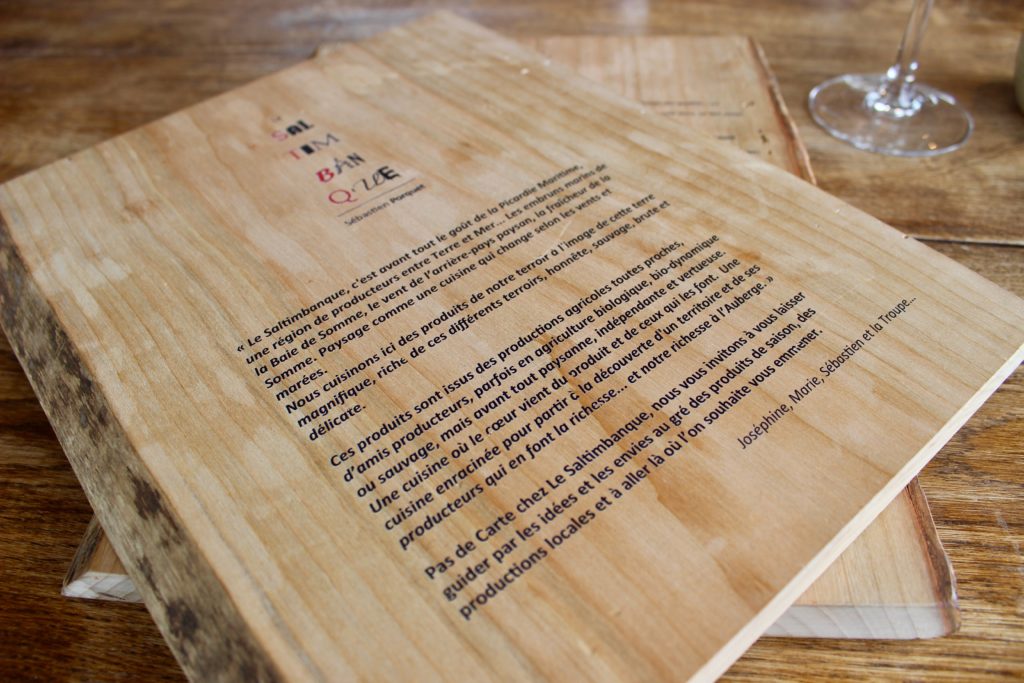 SAL
TIM
BAN
QUE
Sébastien Porquet
« Le Saltimbanque, c'est avant tout le goût de la Picardie Maritime,
une région de producteurs entre Terre et Mer... Les embruns marins de
la Baie de Somme, le vent de l'arrière-pays paysan, la fraîcheur de la
Somme. Paysage comme une cuisine qui change selon les vents et
marées.
Nous cuisinons ici des produits de notre terroir à l'image de cette terre
magnifique, riche de ces différents terroirs, honnête, sauvage, brute et
délicate.
Ces produits sont issus des productions agricoles toutes proches,
d'amis producteurs, parfois en agriculture biologique, bio-dynamique
ou sauvage, mais avant tout paysanne, indépendante et vertueuse.
Une cuisine où le cœur vient du produit et de ceux qui les font. Une
cuisine enracinée pour partir à la découverte d'un territoire et de ses
producteurs qui en font la richesse... et notre richesse à l'Auberge. »
Pas de Carte chez Le Saltimbanque, nous vous invitons à vous laisser
guider par les idées et les envies au gré des produits de saison, des
productions locales et à aller là où l'on souhaite vous emmener.
Joséphine, Marie, Sébastien et la Troupe...